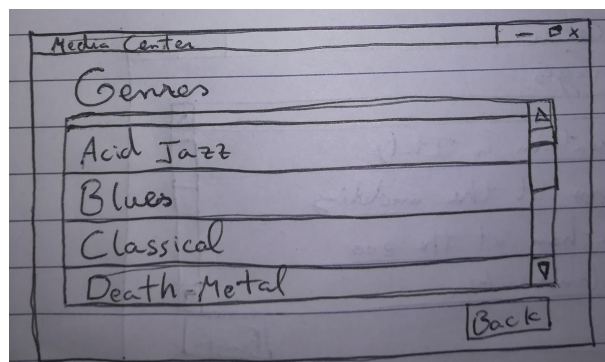 Media Center
Genres
Acid Jazz
Blues
Classical
Death-Metal
Back